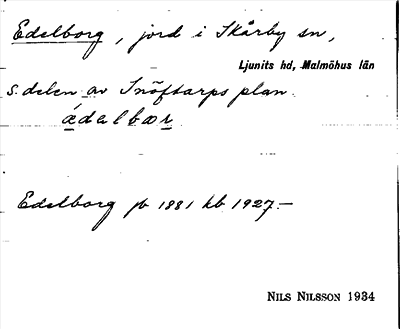 Edelborg, jord i Skårby sn,
Ljunits hd, Malmöhus län
S. delen av Snöftarps plan.
ádalbǫr
Edelborg jb 1881 hb 1927.—
NILS NILSSON 1934